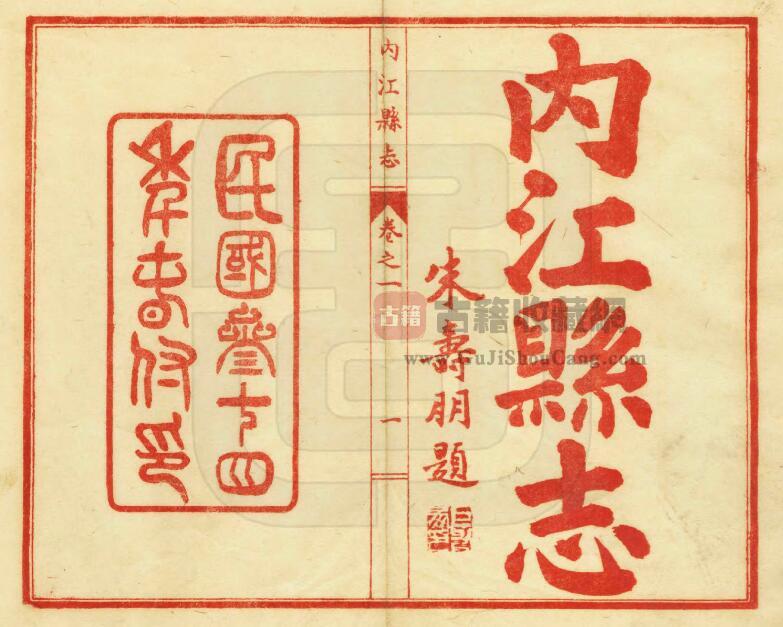 內江縣志
朱壽朋題
內江縣志
卷之一
一
民國參十四
年春付印
古籍
古籍收藏網
www.GuJiShouCang.com